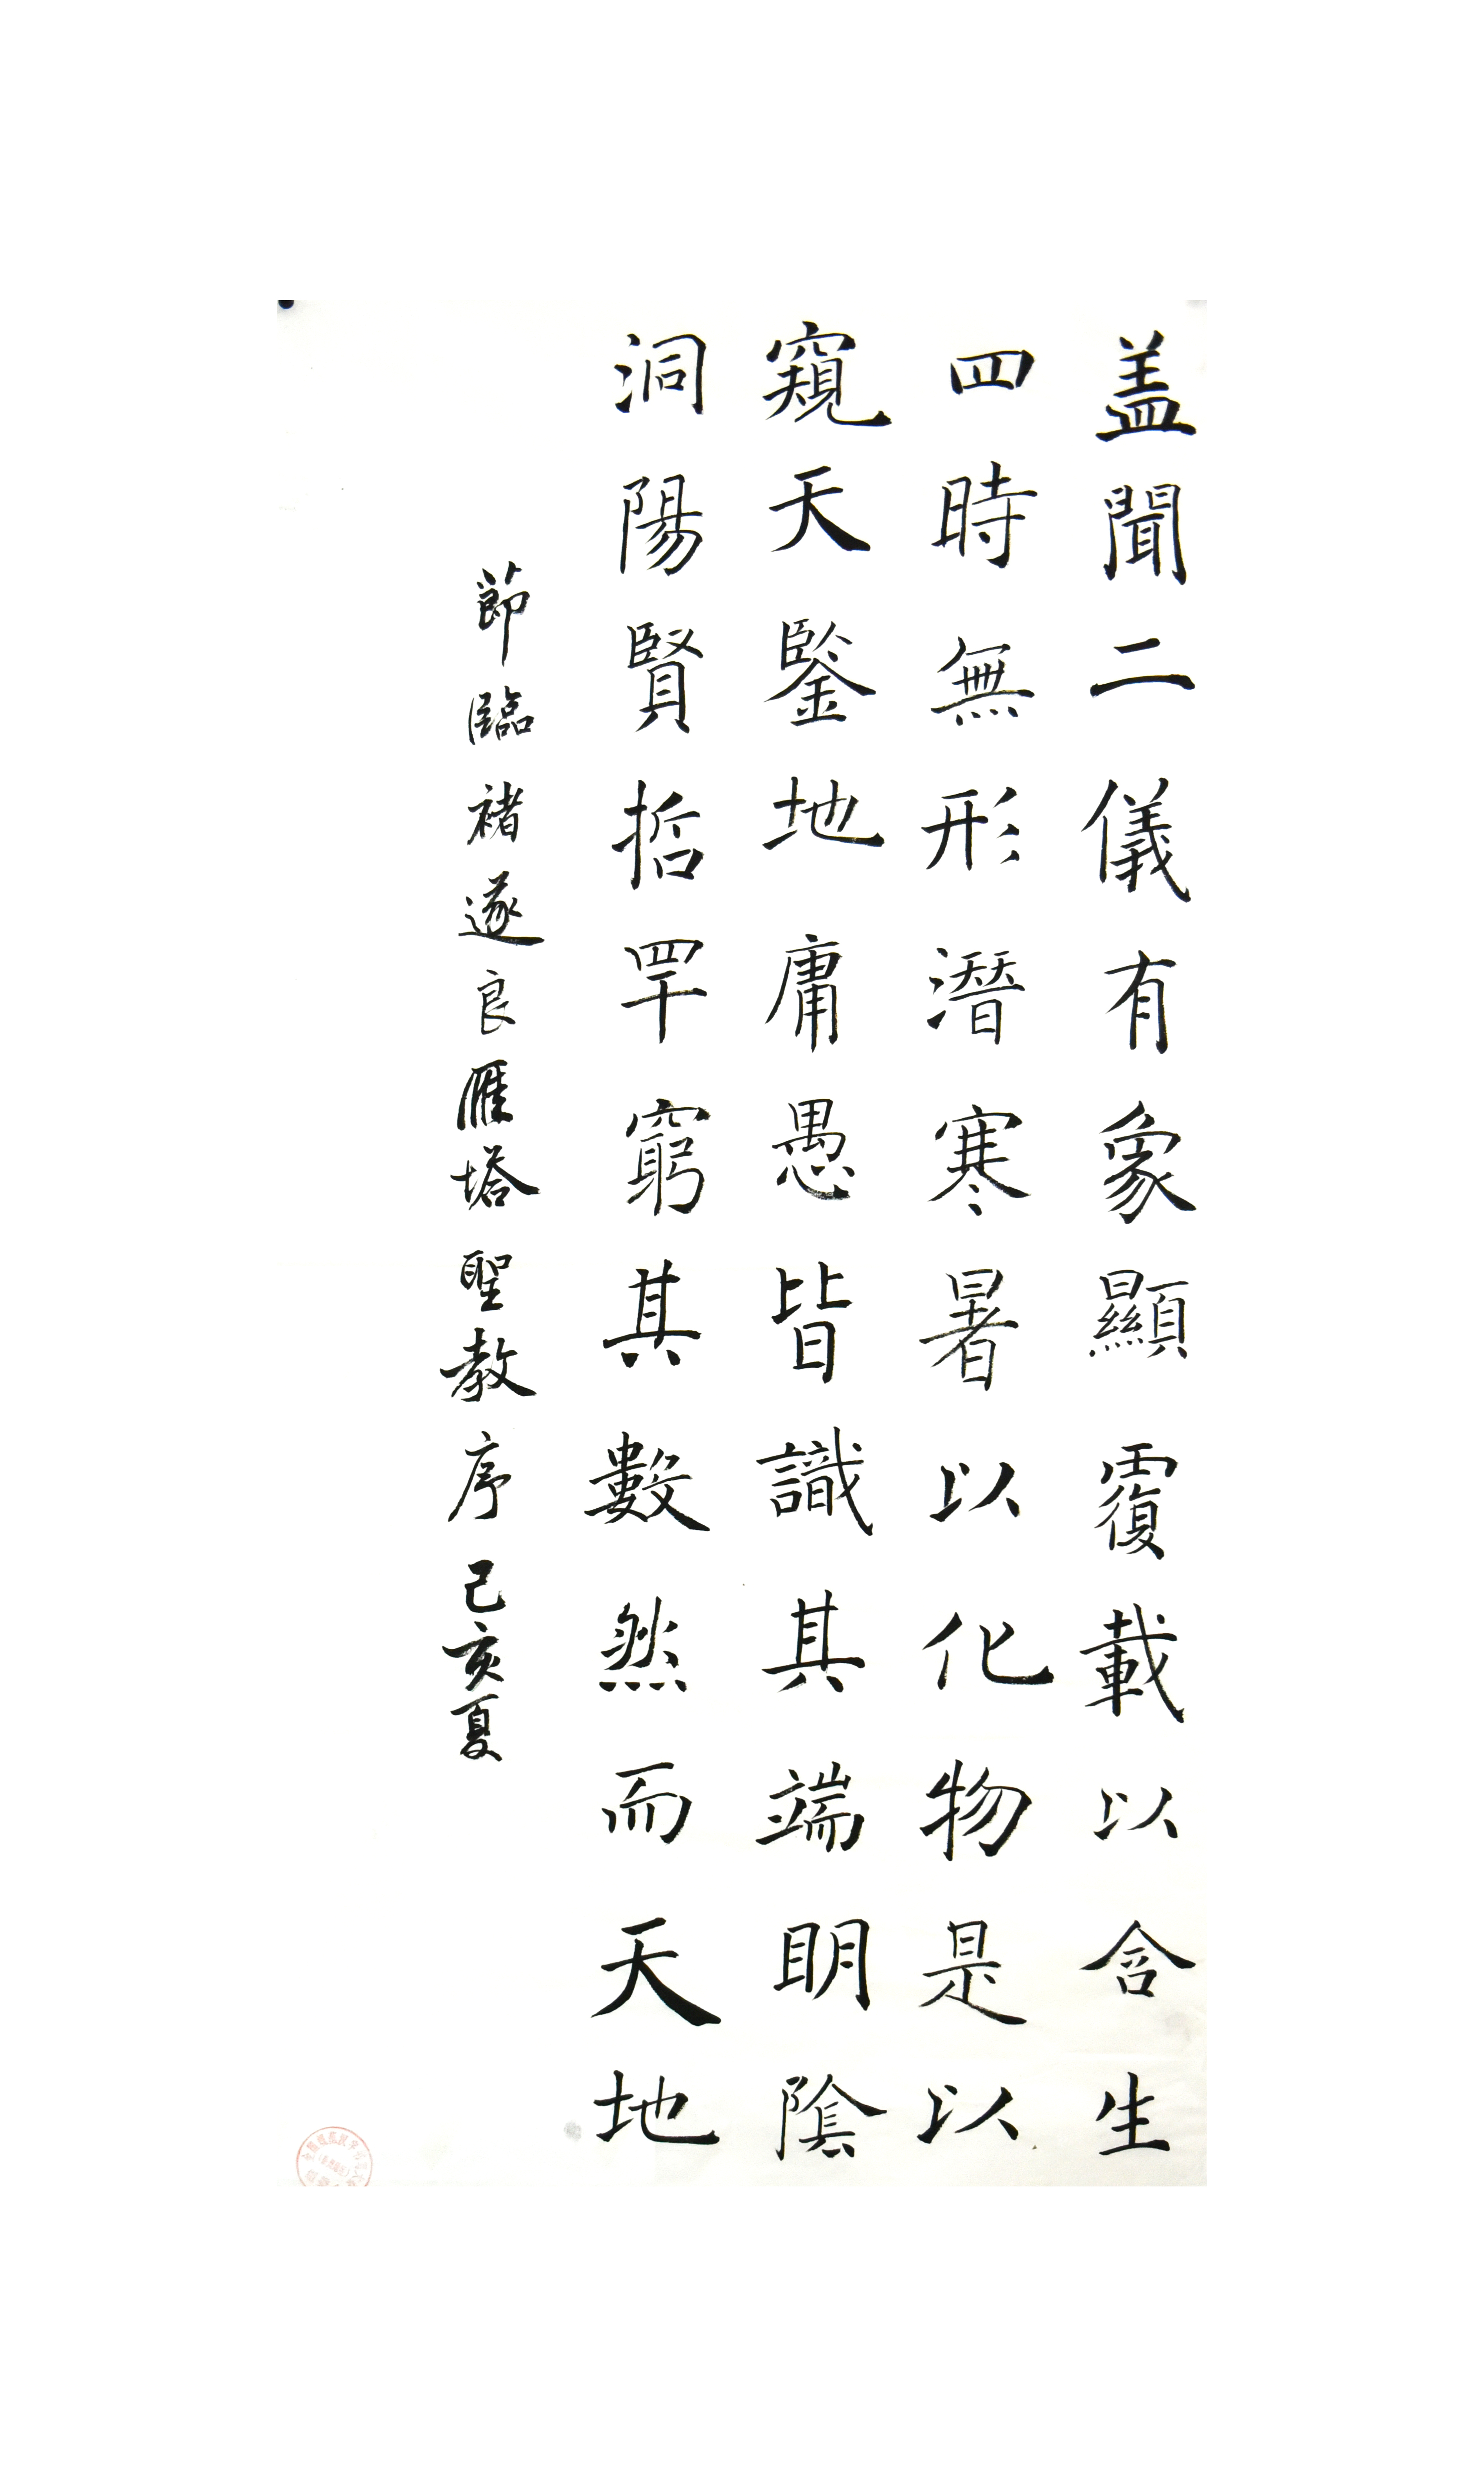 蓋聞二儀有象顯覆載以含生
四時無形潛寒暑以化物是以
窺天鑒地庸愚皆識其端明陰
洞陽賢哲罕窮其數然而天地
節臨褚遂良雁塔聖教序己亥夏